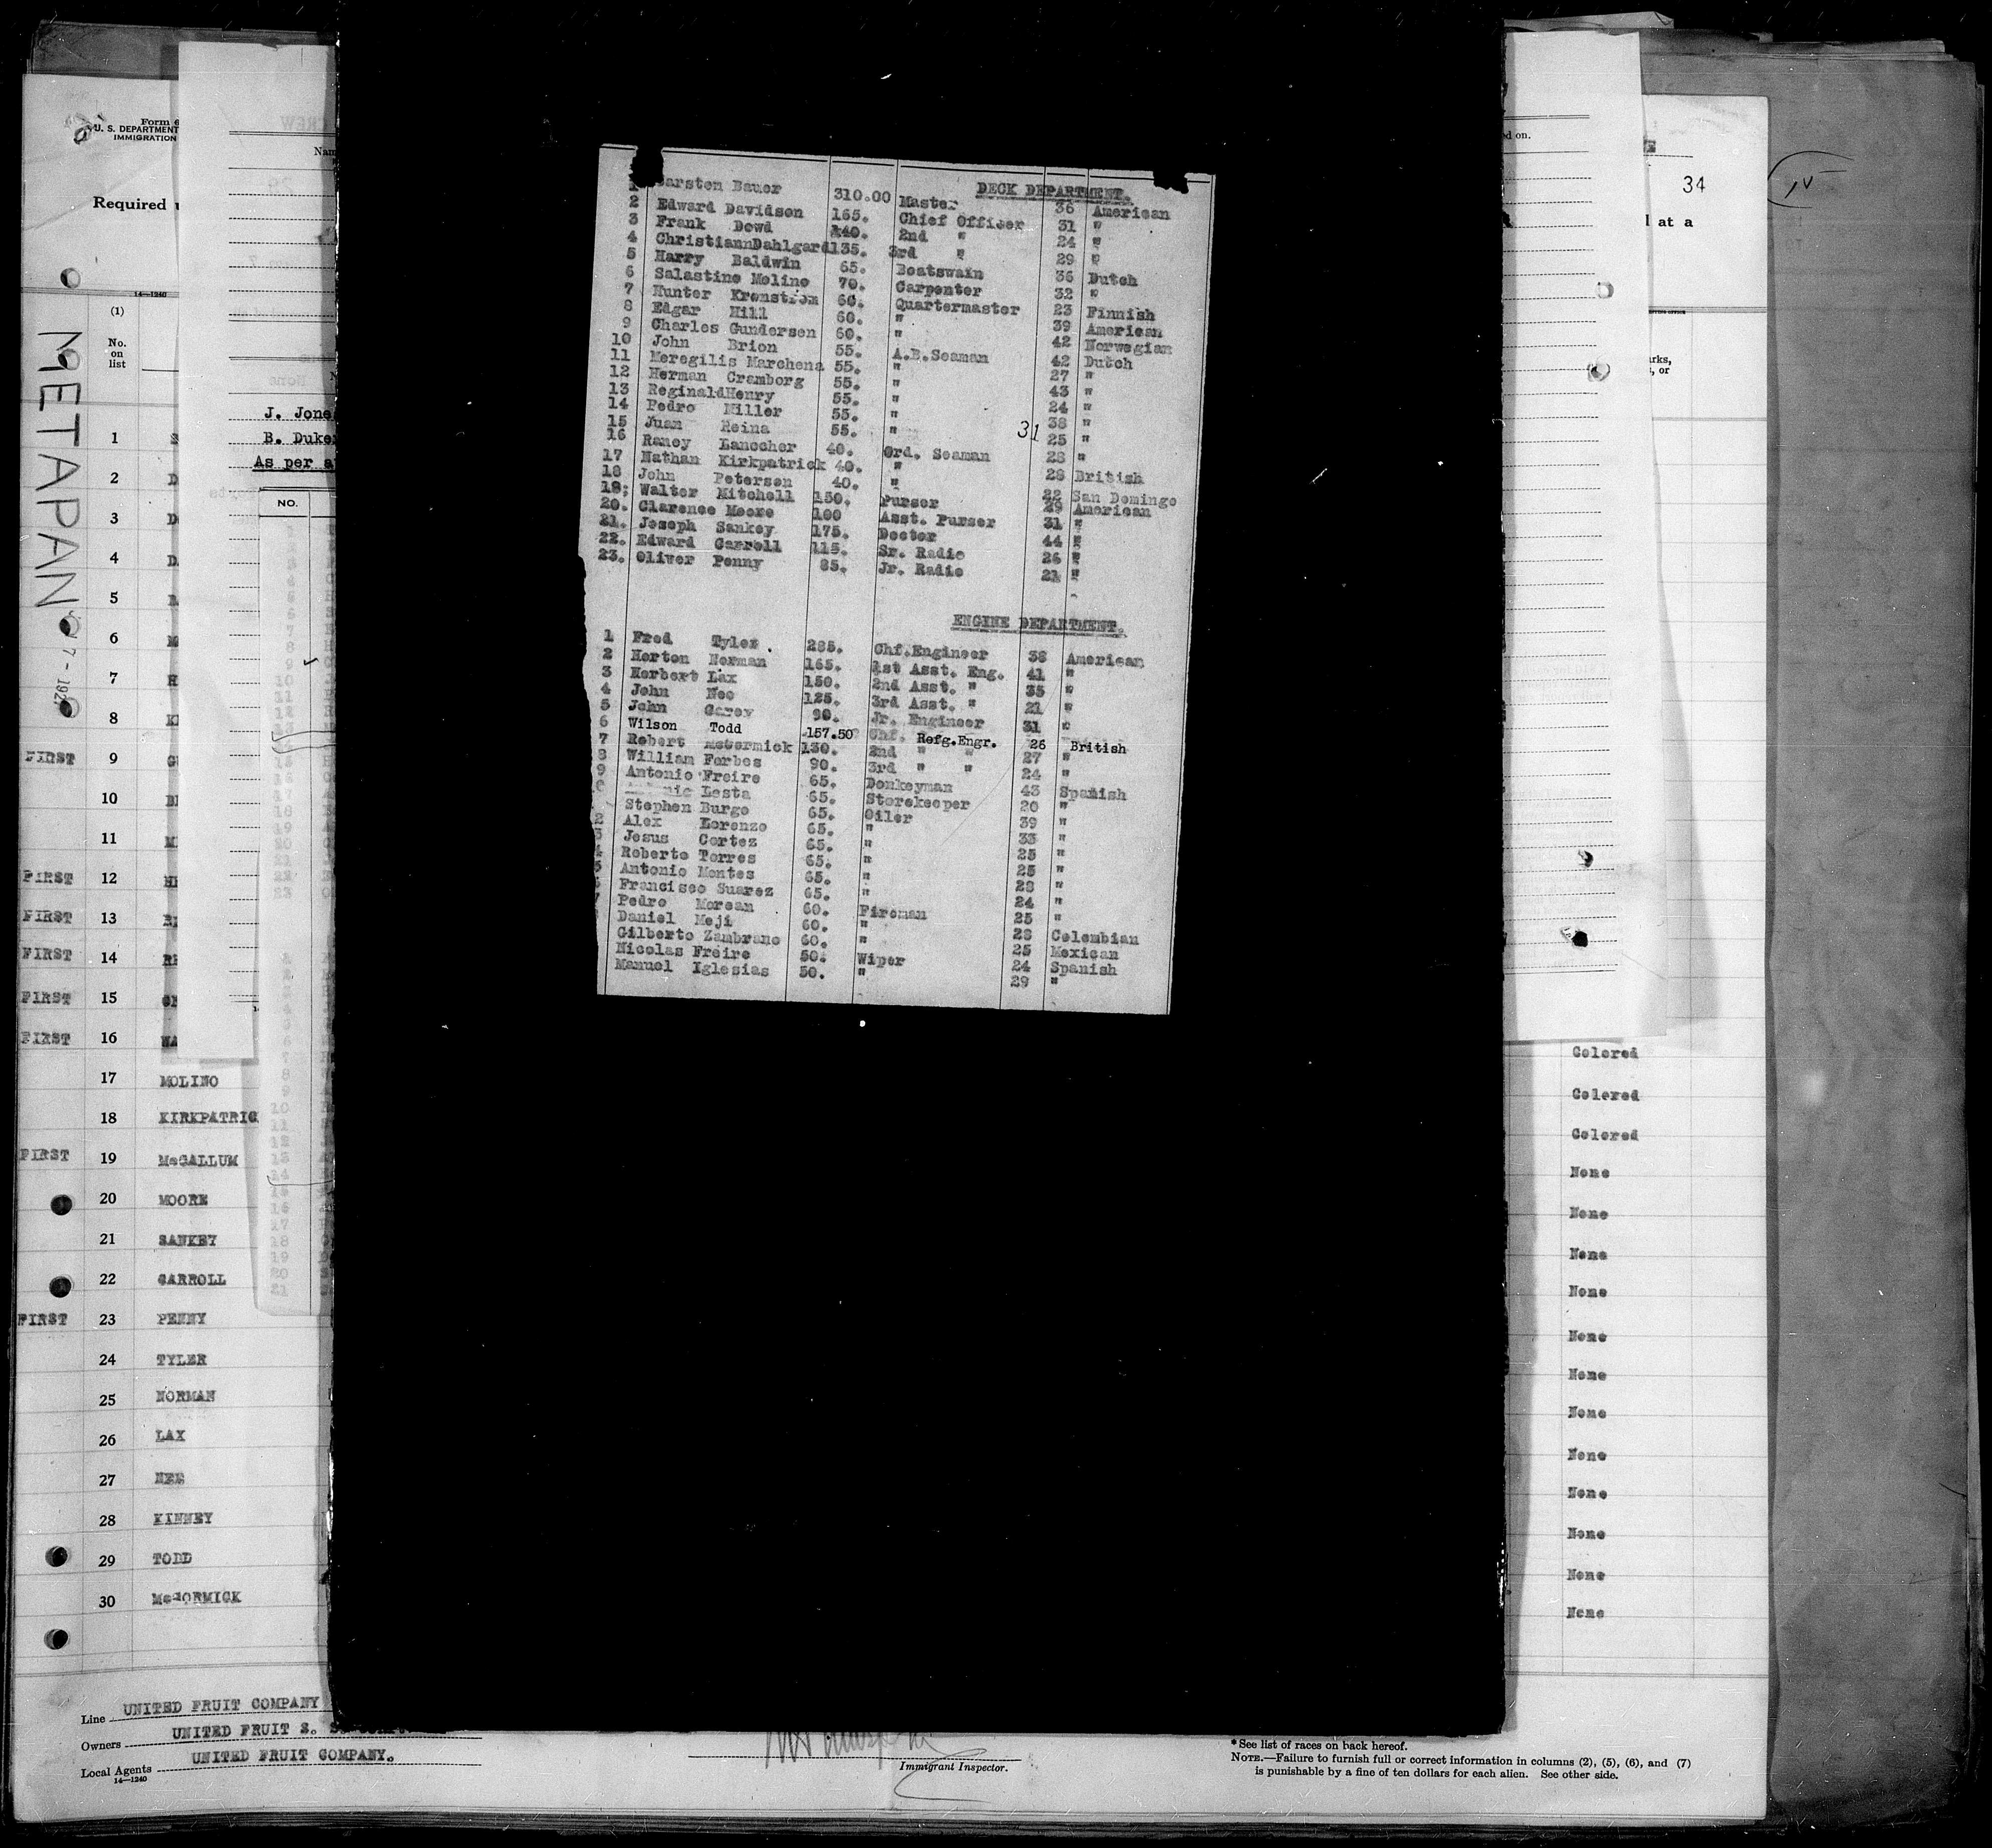 Form 6
U. S. DEPARTMENT
IMMIGRATION
Required
14—1240
(1)
No.
on
list
METAPAN
7 - 192
Nam
J. Jone
B. Duke
As per a
NO.
DECK DEPARTMENT.
1 Carsten Bauer 310.00 Master 36 American
2 Edward Davidson 165. Chief Officer 31 "
3 Frank Dowd 140. 2nd " 24 "
4 ChristiannDahlgard135. 3rd " 29 "
5 Harry Baldwin 65. Boatswain 36 Dutch
6 Salastino Molino 70. Carpenter 32 "
7 Hunter Kronstrom 60. Quartermaster 23 Finnish
8 Edgar Hill 60. " 39 American
9 Charles Gundersen 60. " 42 Norwegian
10 John Brion 55. A.B.Seaman 42 Dutch
11 Meregilis Marchena 55. " 27 "
12 Herman Cramborg 55. " 43 "
13 ReginaldHenry 55. " 24 "
14 Pedro Miller 55. " 38 "
15 Juan Reina 55. " 31 25 "
16 Raney Lanocher 40. Ord. Seaman 28 "
17 Nathan Kirkpatrick 40. " 28 British
18 John Petersen 40. " 22 San Domingo
19; Walter Mitchell 150. Purser 29 American
20. Clarence Moore 100 Asst. Purser 31 "
21. Joseph Sankey 175. Doctor 44 "
22. Edward Carroll 115. Sr. Radio 26 "
23. Oliver Penny 85. Jr. Radio 21 "
ENGINE DEPARTMENT.
1 Fred Tyler 285. Chf.Engineer 38 American
2 Horton Norman 165. 1st Asst. Eng. 41 "
3 Herbert Lax 150. 2nd Asst. " 35 "
4 John Nee 125. 3rd Asst. " 21 "
5 John Garey 90. Jr. Engineer 31 "
6 Wilson Todd 157.50 Chf. Refg.Engr. 26 British
7 Robert McCormick 130. 2nd " " 27 "
8 William Forbes 90. 3rd " " 24 "
9 Antonio Freire 65. Donkeyman 43 Spanish
0 Lesta 65. Storekeeper 20 "
Stephen Burgo 65. Oiler 39 "
2 Alex Lorenzo 65. " 33 "
3 Jesus Cortez 65. " 25 "
4 Roberto Torres 65. " 25 "
5 Antonio Montes 65. " 28 "
Francisco Suarez 65. " 24 "
7 Pedro Morean 60. Fireman 25 "
Daniel Meji 60. " 28 Colombian
Gilberto Zambrano 60. " 25 Mexican
Nicolas Freire 50. Wiper 24 Spanish
Manuel Iglesias 50. " 29 "
1
2
3
4
5
6
7
8
FIRST 9
10
11
FIRST 12
FIRST 13
FIRST 14
FIRST 15
FIRST 16
17 MOLINO
18 KIRKPATRIC
FIRST 19 McCALLUM
20 MOORE
21 SANKEY
22 CARROLL
FIRST 23 PENNY
24 TYLER
25 NORMAN
26 LAX
27 NEE
28 KINNEY
29 TODD
30 McCORMICK
d on.
34
l at a
rks,
, or
Colored
Colored
Colored
None
None
None
None
None
None
None
None
None
None
None
None
Line UNITED FRUIT COMPANY
Owners UNITED FRUIT S. S.
Local Agents UNITED FRUIT COMPANY.
14—1240
Immigrant Inspector.
* See list of races on back hereof.
NOTE.—Failure to furnish full or correct information in columns (2), (5), (6), and (7)
is punishable by a fine of ten dollars for each alien. See other side.